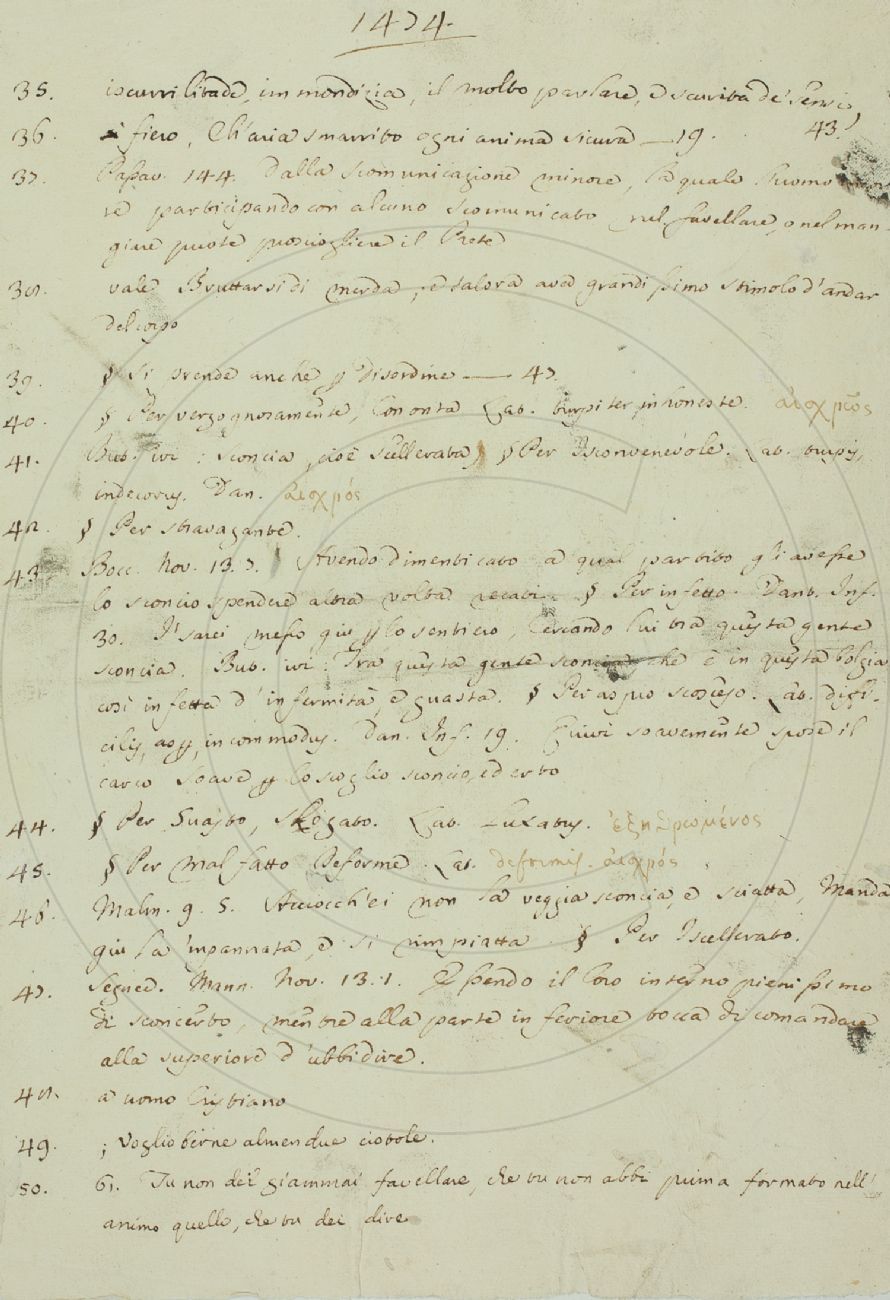 1474.
35. iscurrilitade, immondizia, il molto parlare, e scurità de' sensi
36. fiero, Ch'avia smarrito ogni anima sicura — 19. 43.
37. Passav. 144. Dalla scomunicazione minore, la quale l'uomo
re participando con alcuno scomunicato nel favellare, o nel man-
giare puote prosciogliere il Prete
38. vale Bruttarsi di merda, e talora aver grandissimo stimolo d'andar
del corpo
39. § Si prende anche p Disordine — 47.
40. § Per vergognosamente, Con onta Lat. turpiter, inhoneste. αἰσχρῶς
41. But. ivi: sconcia, cioè scellerata § Per Isconvenevole. Lat. turpis,
indecorus. Dan. αἰσχρός
42. § Per stravagante.
43. Bocc. Nov. 13.7. Avendo dimenticato a qual partito gli avesse
lo sconcio spendere altra volta recati § Per infetto. Dant. Inf.
30. I' sarei messo giu p lo sentiero, Cercando lui tra questa gente
sconcia. But. ivi: Tra questa gente sconcia, che è in questa bolgia
così infetta d'infermità, e guasta. § Per aspro scosceso. Lat. diffi-
cilis, asp, incommodus. Dan. Inf. 19. Quivi soavemente spose il
carco Soave p lo scoglio sconcio, ed erto
44. § Per Guasto, Slogato. Lat. Luxatus. ἐξηρθρωμένος
45. § Per Mal fatto Deforme. Lat. deformis. αἰσχρός
46. Malm. 9. 5. Acciocch'ei non la veggia sconcia, e sciatta, Manda
giu la 'mpannata, e si rimpiatta § Per Iscellerato.
47. Segner. Mann. Nov. 13.1. Essendo il loro interno pienissimo
di sconcerto, mentre alla parte inferiore tocca di comandare
alla superiore d'ubbidire.
48. a uomo Cristiano
49. ; Voglio berne almen due ciotole.
50. 61. Tu non dei giammai favellare, che tu non abbi prima formato nell'
animo quello, che tu dei dire